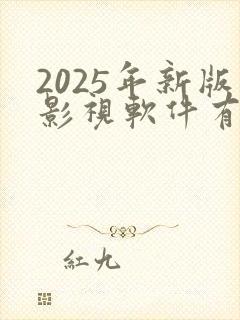 2025年新版
影視軟件有
紅九